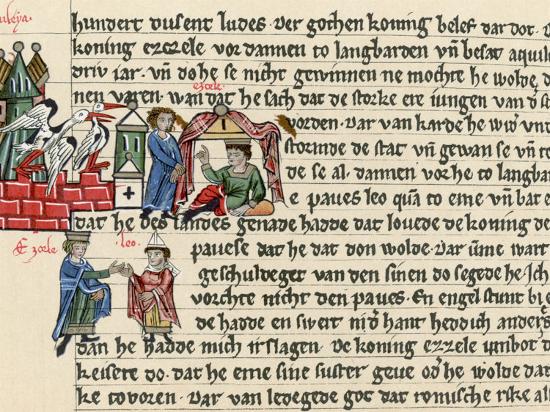 uileya.
hundert dusent ludes. Der gochen koning belef dar dot.
koning ezzele vor dannen to langbarden vñ besat aquile
driv iar. vñ do he se nicht gewinnen ne mochte he wolde
ezzele
nen varen. wan dat he sach dat de storke ere iungen van d
vorden. Dar van karde he wid vnt
stormde de stat vñ gewan se vñ
de se al. dannen vor he to langba
e paves leo quā to eme vñ bat e
dat he des landes genade hadde dat lovede de koning d
Ezzele leo.
pavese dat he dat don wolde. Dar ūme wart
geschuldeget van den sinen do segede he. Ich
vorchte nicht den paves. En engel stunt bi
de hadde en swert in d hant heddich anders
dan he hadde mich irslagen. De koning ezzele unbot d
keisere do. dat he eme sine suster geve od he wolde dat
ke tovoren. Dar van ledegede got dat romische rike al